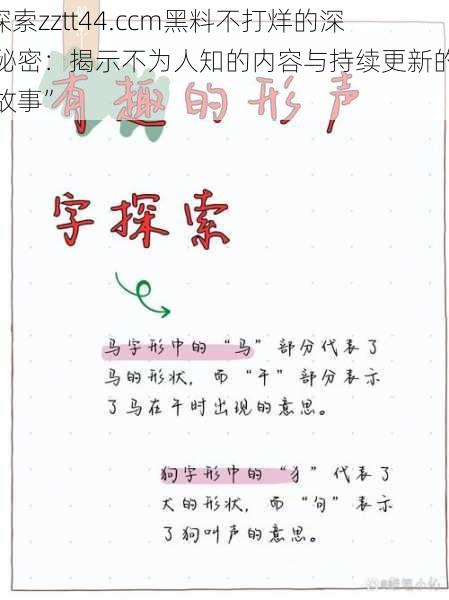 探索zztt44.ccm黑料不打烊的深
秘密：揭示不为人知的内容与持续更新的
故事”
有趣的形声
字探索
马字形中的“马”部分代表了
马的形状，而“干”部分表示
了马在午时出现的意思。
狗字形中的“犭”代表了
犬的形状，而“句”表示
了狗叫声的意思。